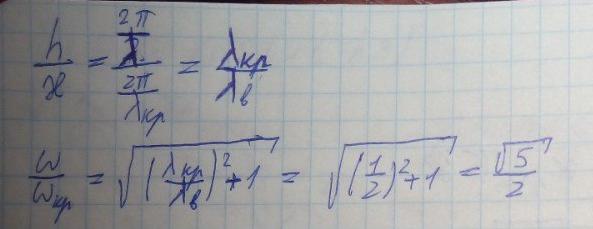 h/æ = (2π/λ)/(2π/λкр) = λкр/λв
ω/ωкр = √((λкр/λв)²+1) = √((1/2)²+1) = √5/2